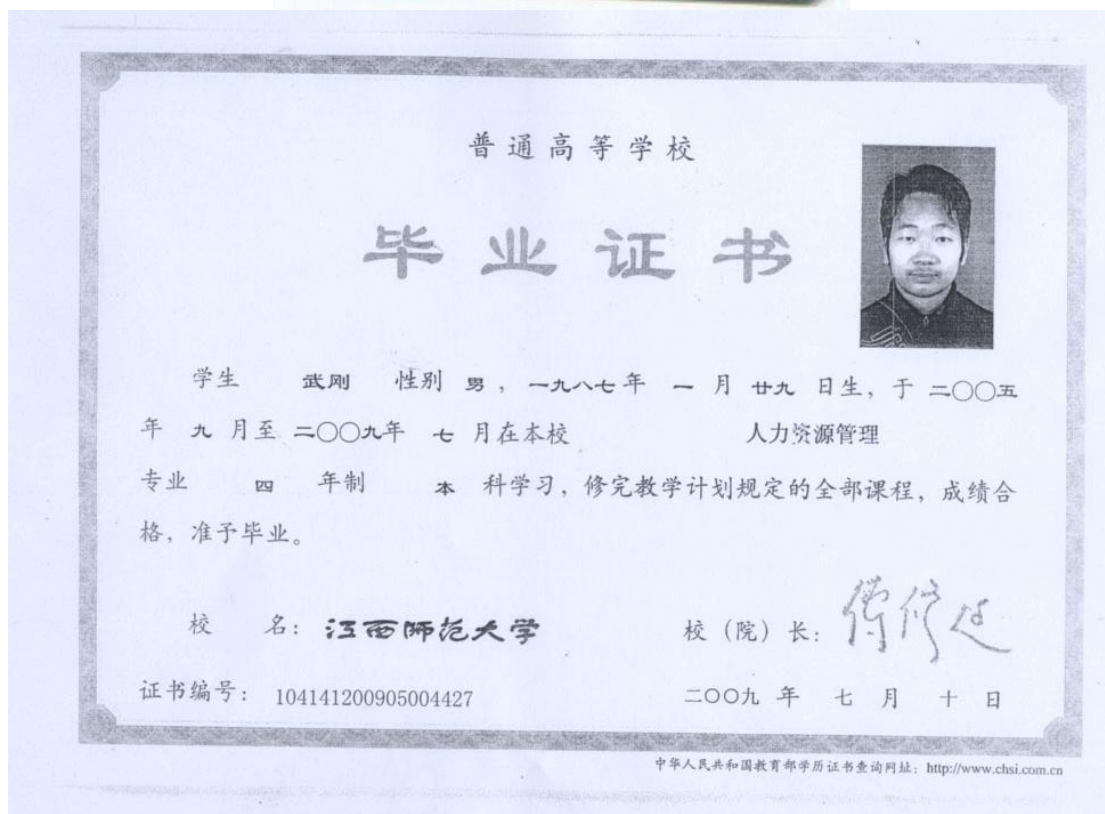 普通高等学校
毕业证书
学生 武刚 性别 男，一九八七年 一 月 廿九 日生，于 二〇〇五
年 九 月至 二〇〇九年 七 月在本校 人力资源管理
专业 四 年制 本 科学习，修完教学计划规定的全部课程，成绩合
格，准予毕业。
校 名：江西师范大学
校（院）长：傅修延
证书编号：104141200905004427
二〇〇九 年 七 月 十 日
中华人民共和国教育部学历证书查询网址：http://www.chsi.com.cn